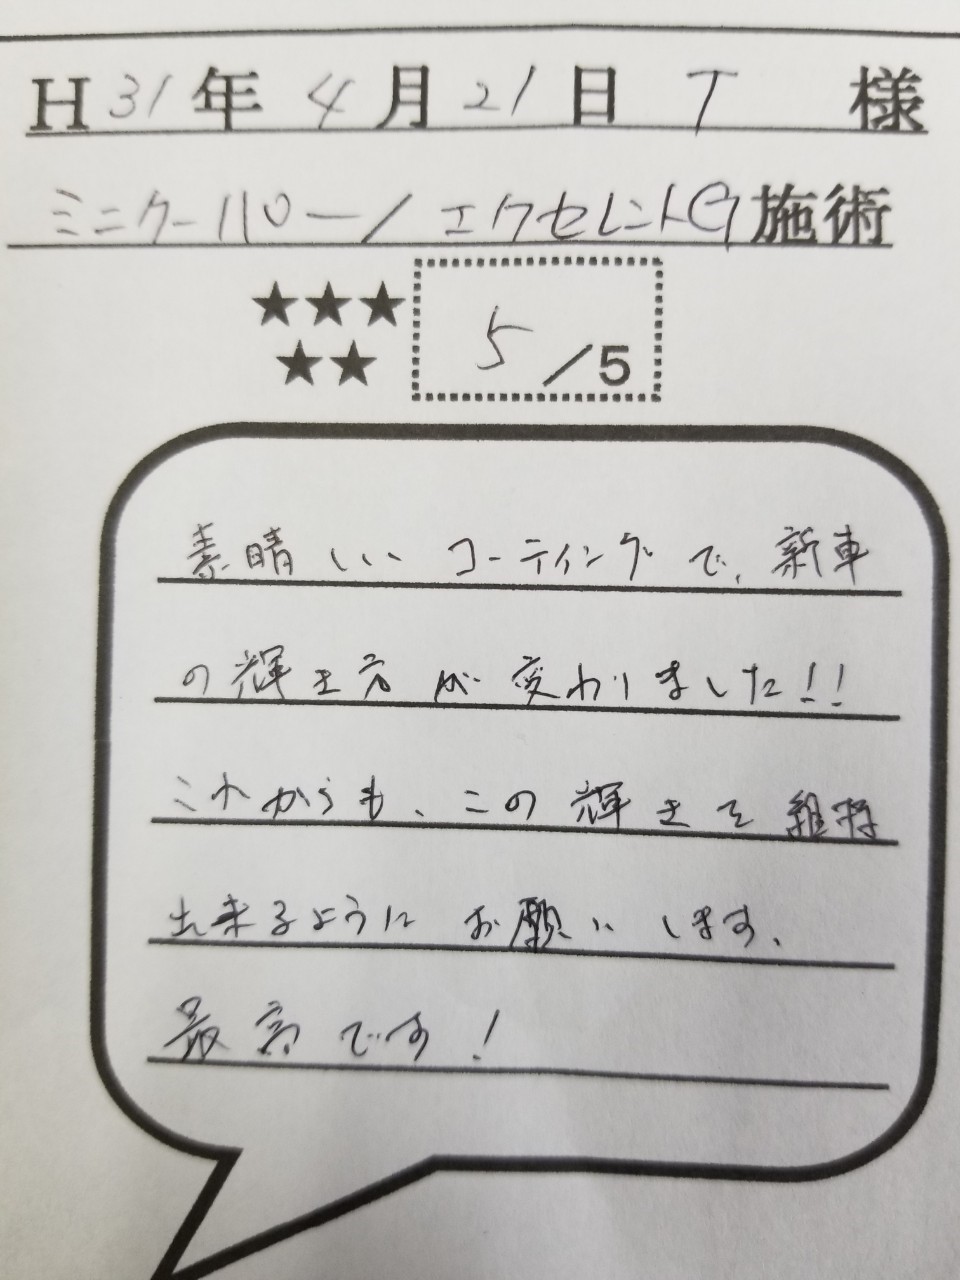 H31年4月21日 T 様
ミニクーパー/エクセレントG施術
★★★
★★
5/5
素晴しい コーティングで、新車
の輝き方が変わりました!!
これからも、この輝きを維持
出来るように お願いします、
最高です!